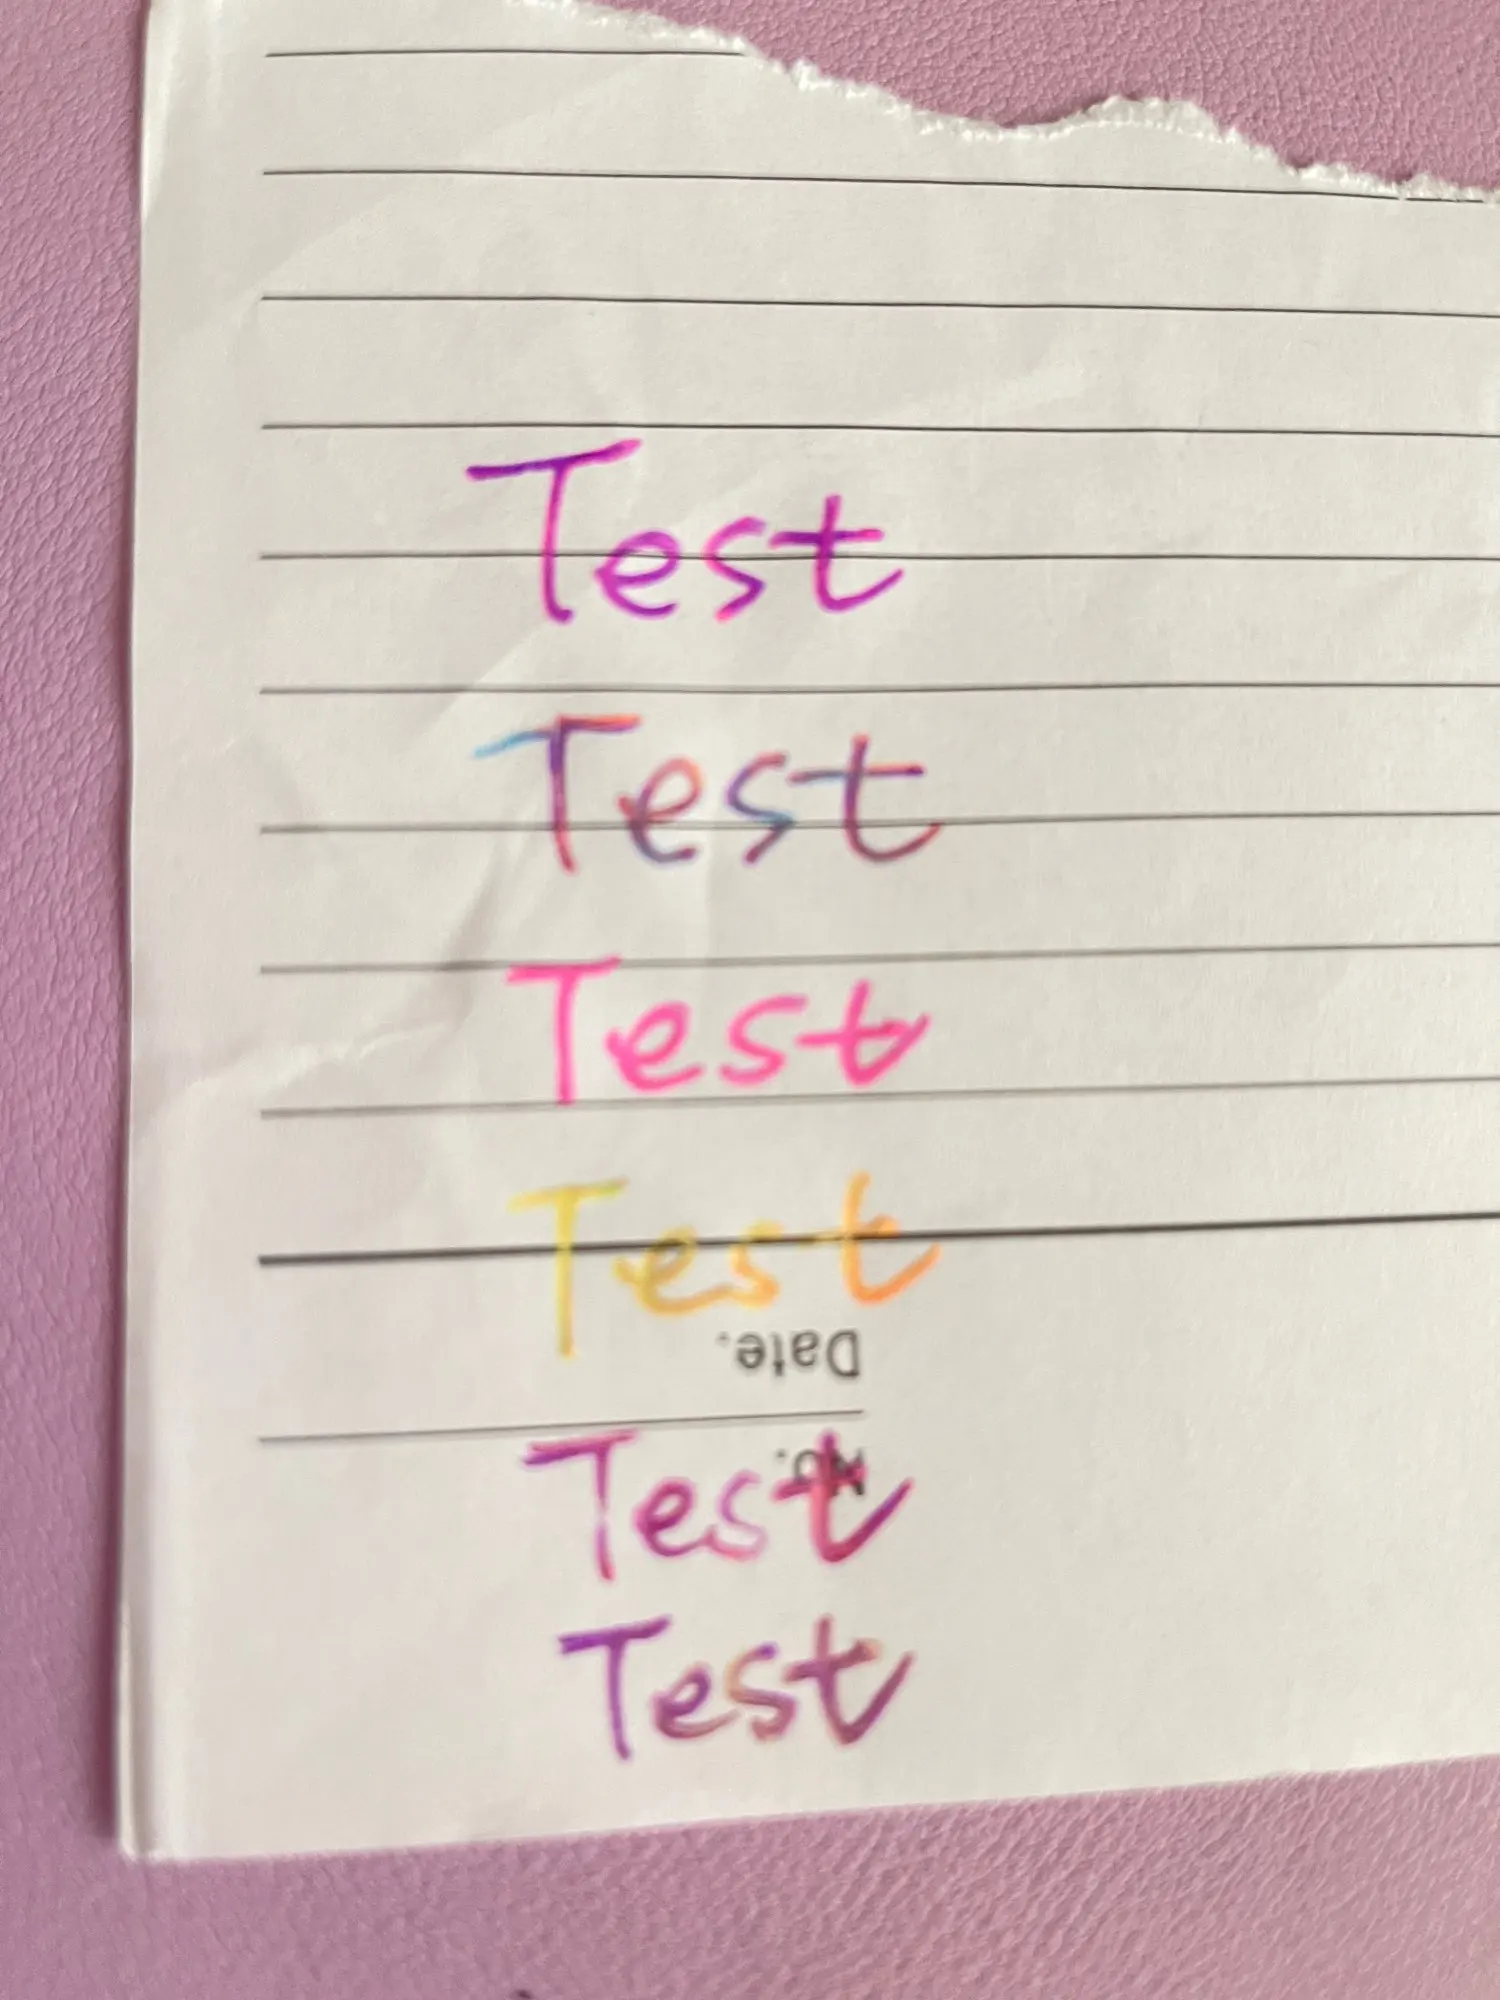 Test
Test
Test
Test
Date.
No.
Test
Test